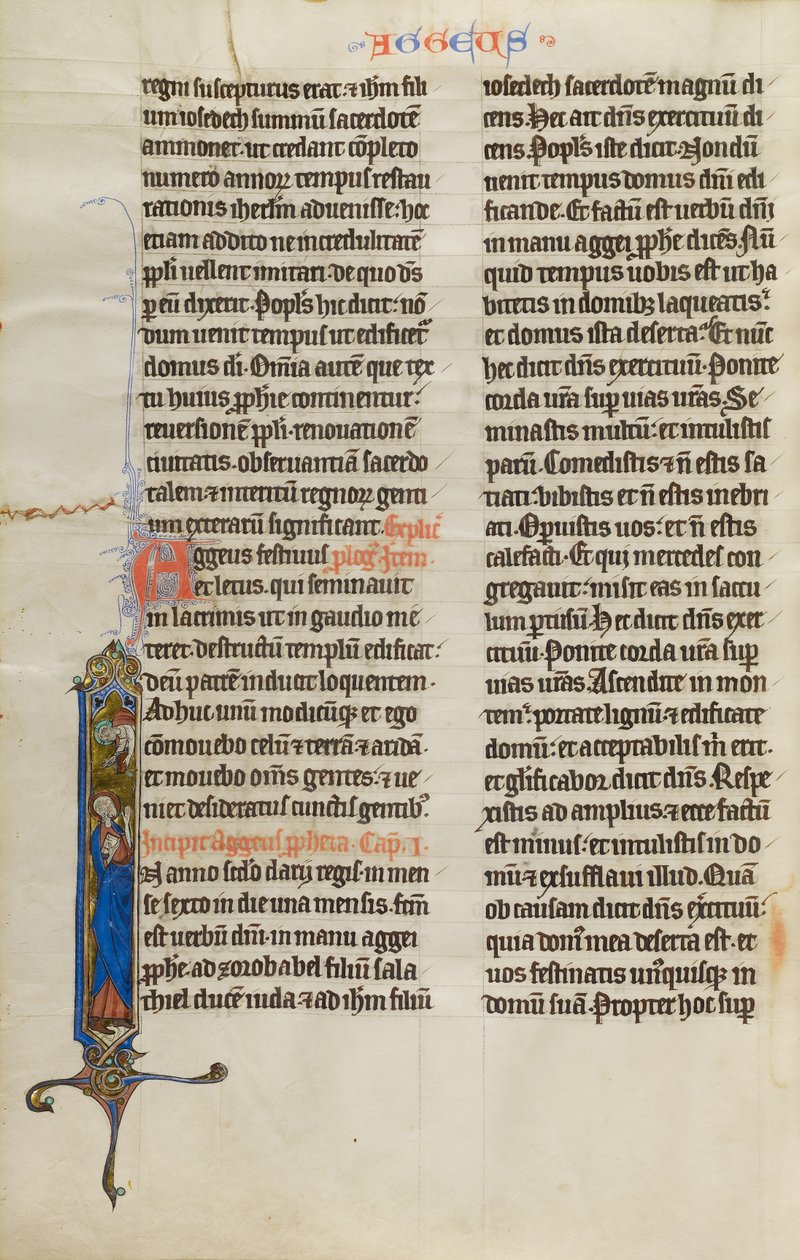 AGGEUS
regni suscepturus erat. ⁊ ihm̄ fili
um iosedech summū sacerdotē
ammonet. ut credant cōpleto
numero annoꝝ tempus restau
rationis iherl̄m aduenisse. hoc
etiam addito ne incredulitatē
pp̄li uellent imitari. de quo ds̄
ꝑ eū dixerit. Popl̄s hic dicit. nō
dum uenit tempus ut edificet᷑
domus dī. Om̄ia autē que tex
tu huius ꝓph̄ie continentur.
reuersionē pp̄li. renouationē
ciuitatis. obseruantiā sacerdo
talem. ⁊ interitū regnoꝝ genti
um exterarū significant. Explic̄
Aggeus festiuus plog᷑. Item.
et letus. qui seminauit
in lacrimis ut in gaudio me
teret. destructū templū edificat.
deū patrē inducit loquentem.
Adhuc unū modicūqꝫ et ego
cōmouebo celū ⁊ terrā ⁊ aridā.
et mouebo om̄s gentes. ⁊ ue
niet desideratus cunctis gentibꝰ.
Incipit Aggeus ꝓpheta. Cap̄. I.
N anno scd̄o darij regis. in men
se sexto in die una mensis. fc̄m
est uerbū dn̄i. in manu aggei
ꝓph̄e. ad zorobabel filiū sala
thiel ducē iuda ⁊ ad ihm̄ filiū
iosedech sacerdotē magnū di
cens. Hec ait dn̄s exercituū di
cens. Popl̄s iste dicit. Nondū
uenit tempus domus dn̄i edi
ficande. Et factū est uerbū dn̄i
in manu aggei ꝓph̄e dicēs. Nū
quid tempus uobis est ut ha
bitetis in domibꝫ laqueatis.
et domus ista deserta. Et nūc
hec dicit dn̄s exercituū. Ponite
corda ur̄a suꝑ uias ur̄as. Se
minastis multū. et intulistis
parū. Comedistis ⁊ n̄ estis sa
tiati. bibistis et n̄ estis inebri
ati. Oꝑuistis uos. et n̄ estis
calefacti. Et qui mercedes con
gregauit. misit eas in saccu
lum ꝑtusū. Hec dicit dn̄s exer
cituū. Ponite corda ur̄a suꝑ
uias ur̄as. Ascendite in mon
tem. portate lignū. ⁊ edificate
domū. et acceptabilis m̄ erit.
et gl̄ificabor dicit dn̄s. Respe
xistis ad amplius. ⁊ ecce factū
est minus. et intulistis in do
mū ⁊ exsufflaui illud. Quā
ob causam dicit dn̄s ex̄cituū.
quia domꝰ mea deserta est. et
uos festinatis un̄quisqꝫ in
domū suā. Propter hoc suꝑ